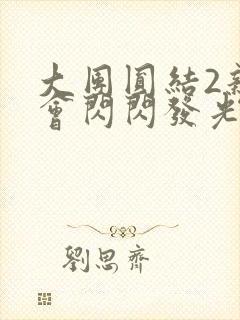 大團圓結2新
會閃閃發光
劉思齊